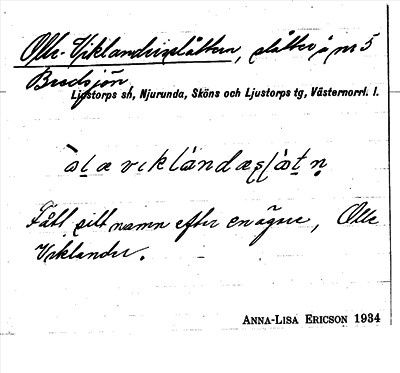 Olle-Viklanderslåttern, slåtter å nr 5
Bredsjön
Ljustorps sn, Njurunda, Sköns och Ljustorps tg, Västernorrl. l.
Fått sitt namn efter en ägare, Olle
Viklander.
ANNA-LISA ERICSON 1934